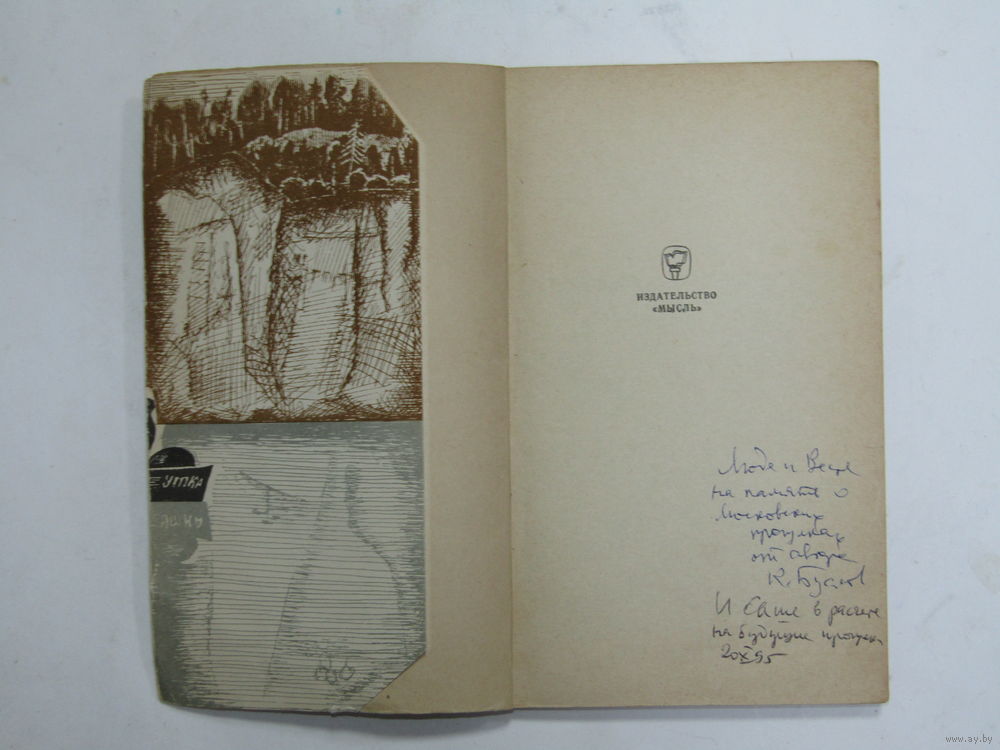 УТКА
ИЗДАТЕЛЬСТВО
«МЫСЛЬ»
Люде и Вете
на память о
Московских
прогулках
от автора
К. Бус
И Саше в расчете
на будущие прогулки
20 X 95
www.ay.by